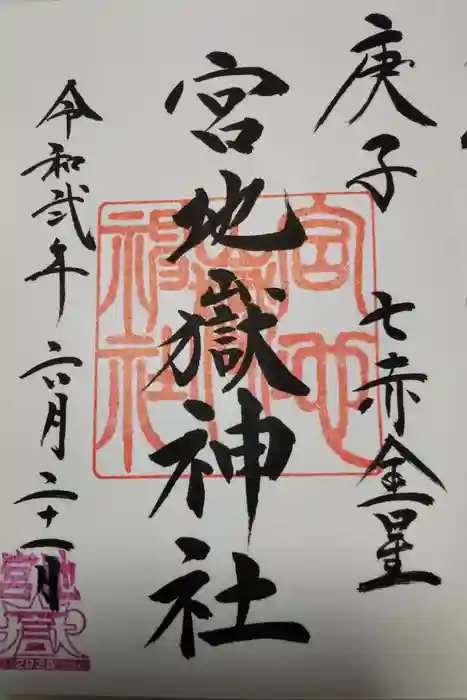 庚子 七赤金星
宮地嶽神社
令和弐年六月二十一日
宮地嶽神社
宮地嶽
2020